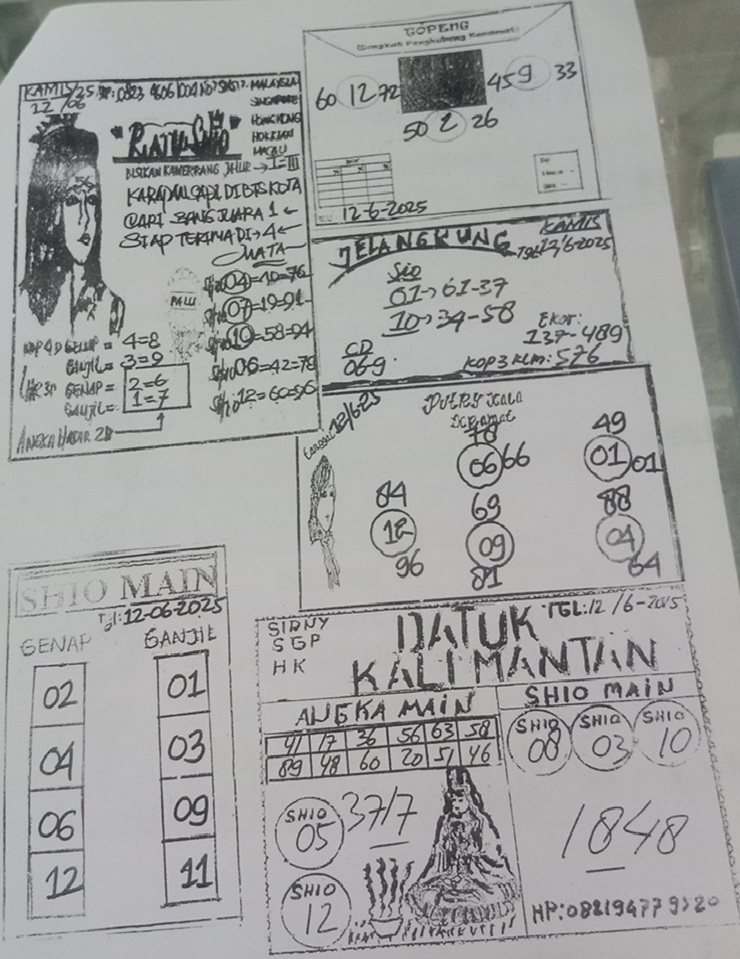 KAMIS/25
12/06
MALAYSIA
SINGAPORE
HONGKONG
HOKKIAN
MACAU
"RATU SHIO"
KARAPAN SAPI DI BTS KOTA
CARI BANG JUARA 1 ←
SIAP TERIMA DI → 4 ←
MATA
PALU
Shio 04 = 40 = 76
Shio 07 = 19 = 91
Shio 10 = 58 = 94
Shio 06 = 42 = 78
Shio 12 = 60 = 96
KOP 4D GENAP = 4=8
GANJIL = 3=9
GENAP = 2=6
GANJIL = 1=7
ANGKA HADIR 2D
GOPENG
60 12 72
45 9 33
50 2 26
12-6-2025
JELANGKUNG
KAMIS
TGL 12/6-2025
Sio
01 → 61-37
10 → 34-58
CD
069
EKOR:
137-489
KOP 3 KLM: 576
12/6-25
PUTRI
78
06 66
49
01 01
84
12
96
69
09
81
88
04
64
SHIO MAIN
Tgl: 12-06-2025
GENAP GANJIL
02 01
04 03
06 09
12 11
SIDNY
SGP
HK
DATUK
KALIMANTAN
TGL: 12/6-2025
ANGKA MAIN
41 17 36 56 63 58
89 48 60 20 51 46
SHIO
05
37/7
SHIO
12
SHIO MAIN
SHIO
08
SHIO
03
SHIO
10
1848